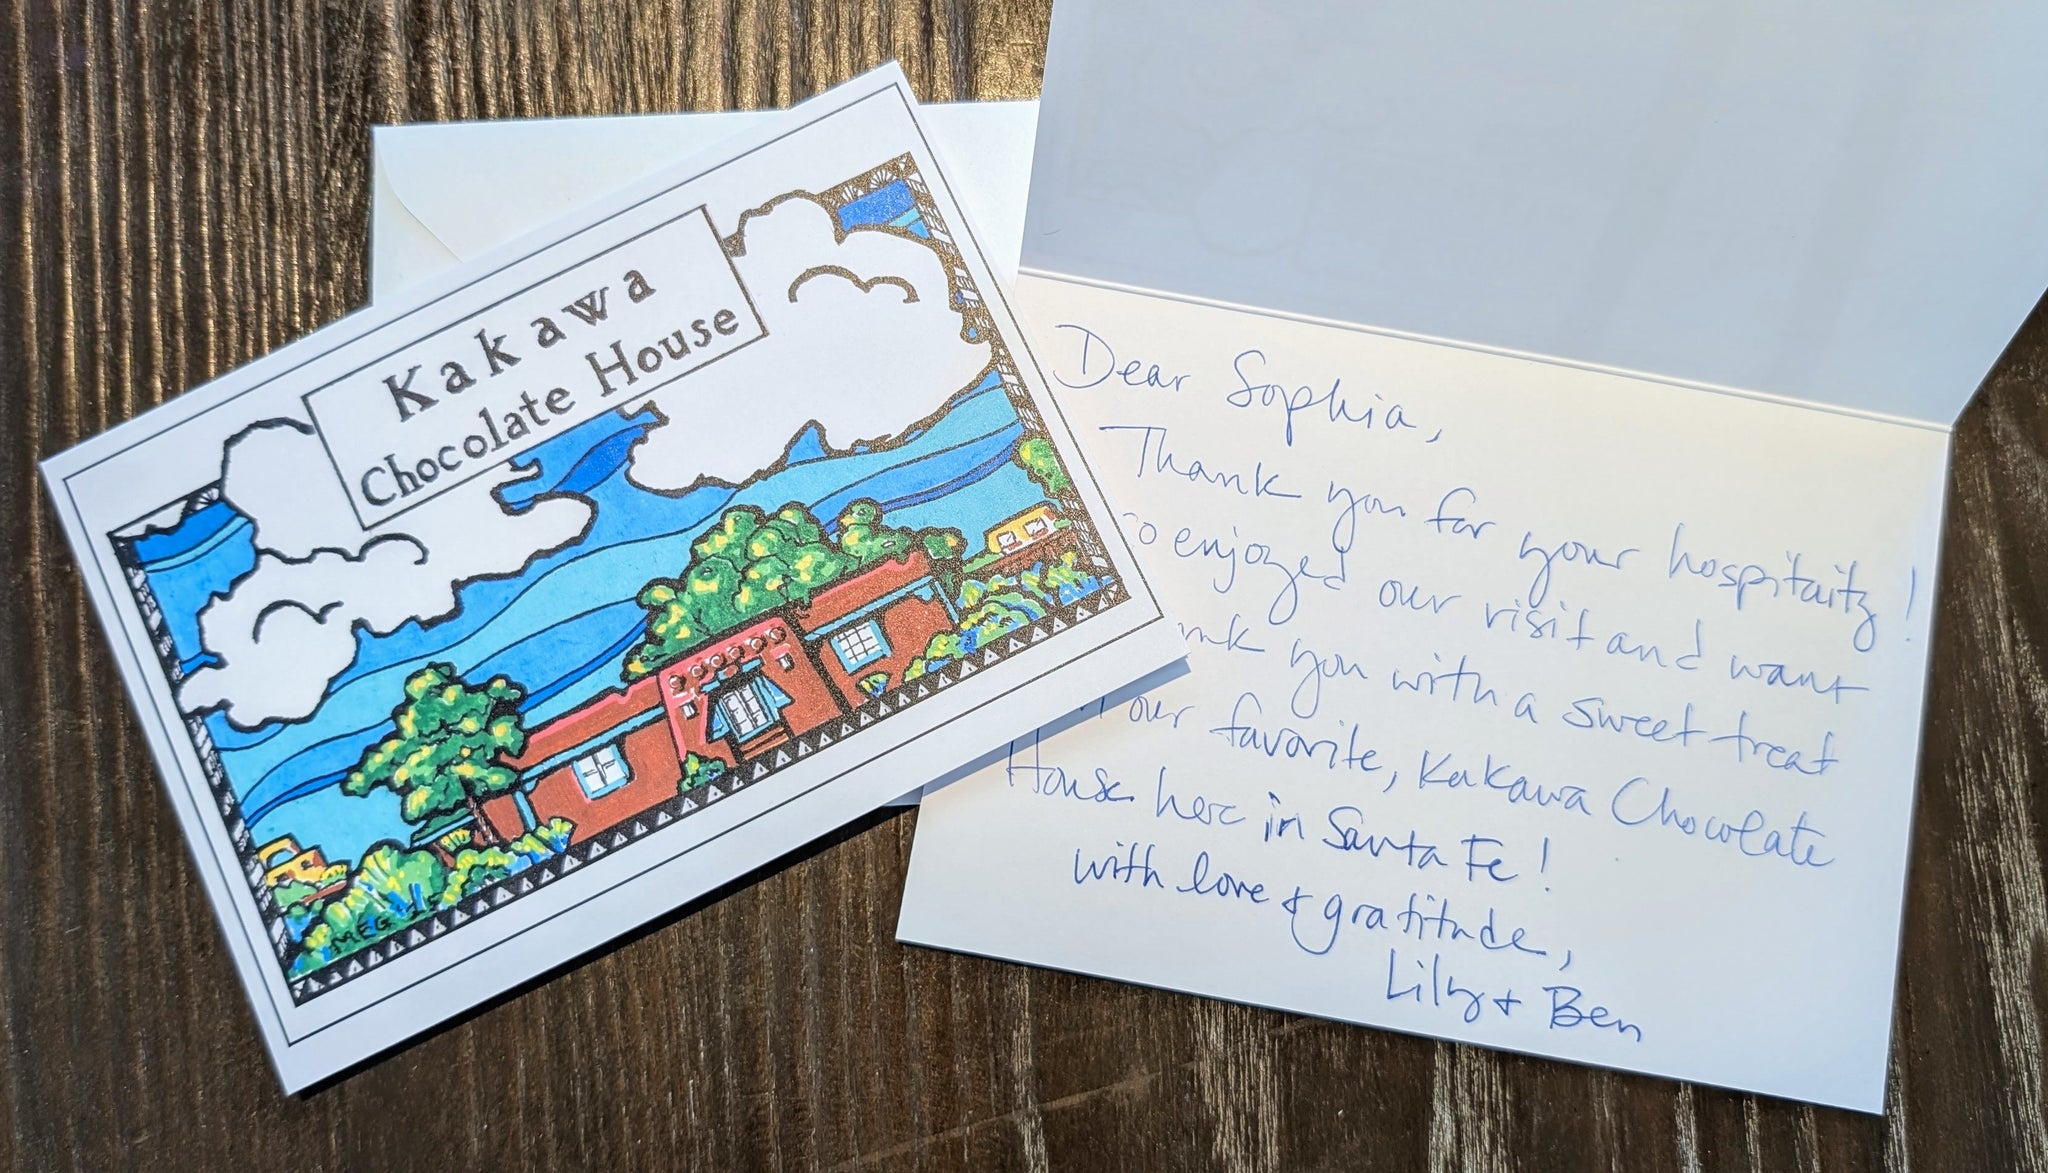 Kakawa
Chocolate House
MEG
Dear Sophia,
Thank you for your hospitality!
enjoyed our visit and want
you with a sweet treat
our favorite, Kakawa Chocolate
House here in Santa Fe!
with love & gratitude,
Lily + Ben